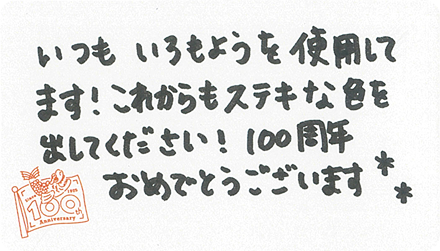 いつも いろもようを使用して
ます！これからもステキな色を
出してください！100周年
おめでとうございます**
since 1925
100th
Anniversary